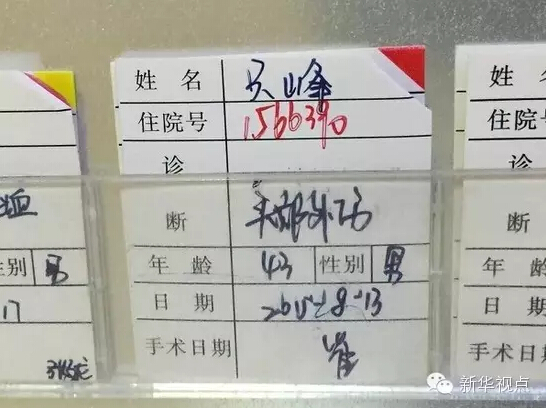 姓 名 吴山峰
住院号 1566390
诊
断 头部外伤
年 龄 43 性别 男
日 期 2015-8-13
手术日期 崔
性别 男
17
姓
住院
断
年 龄
日 期
手术日期
新华视点